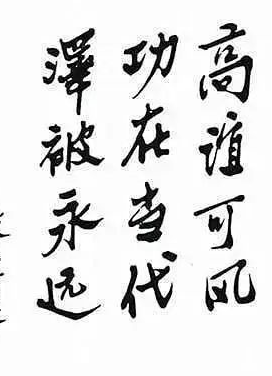 高谊可风
功在当代
澤被永远